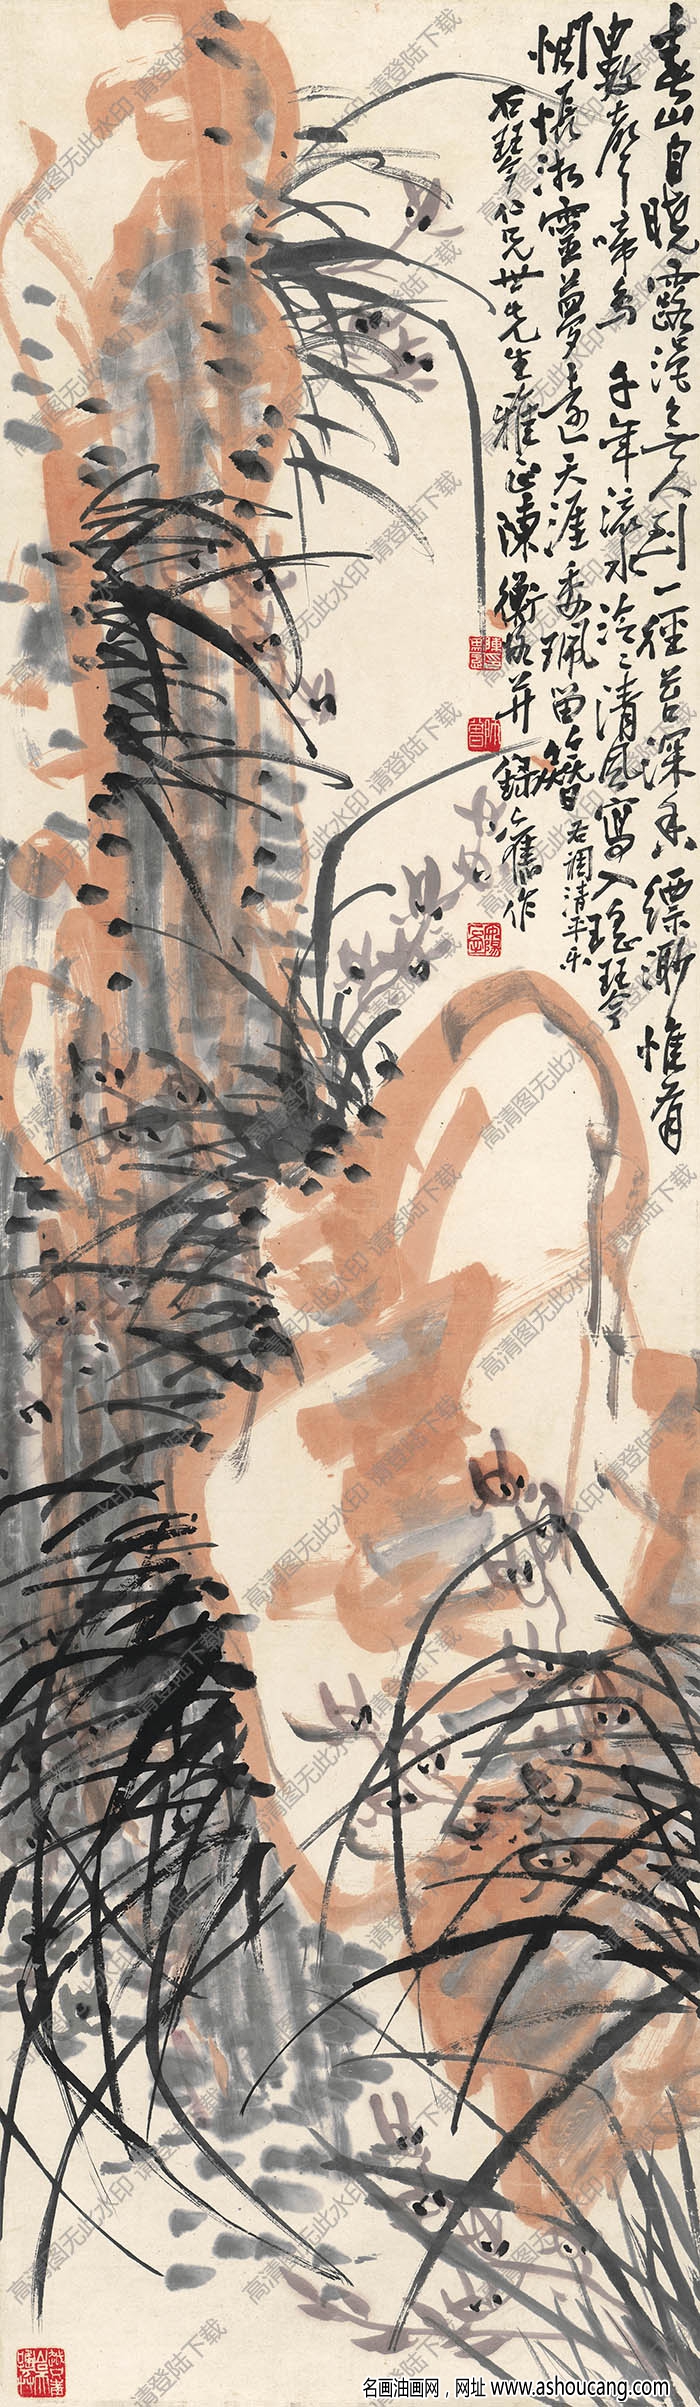 春山自曉露濕無人到一徑苔深香縹渺惟有
數聲啼鳥 千年流水泠泠清風寫入瑤琴
惆悵湘靈夢遠天涯委珮留簪 右調清平樂
石琴仁兄世先生雅正陳衡恪并錄舊作
高清图无此水印 请登陆下载
名画油画网，网址 www.ashoucang.com